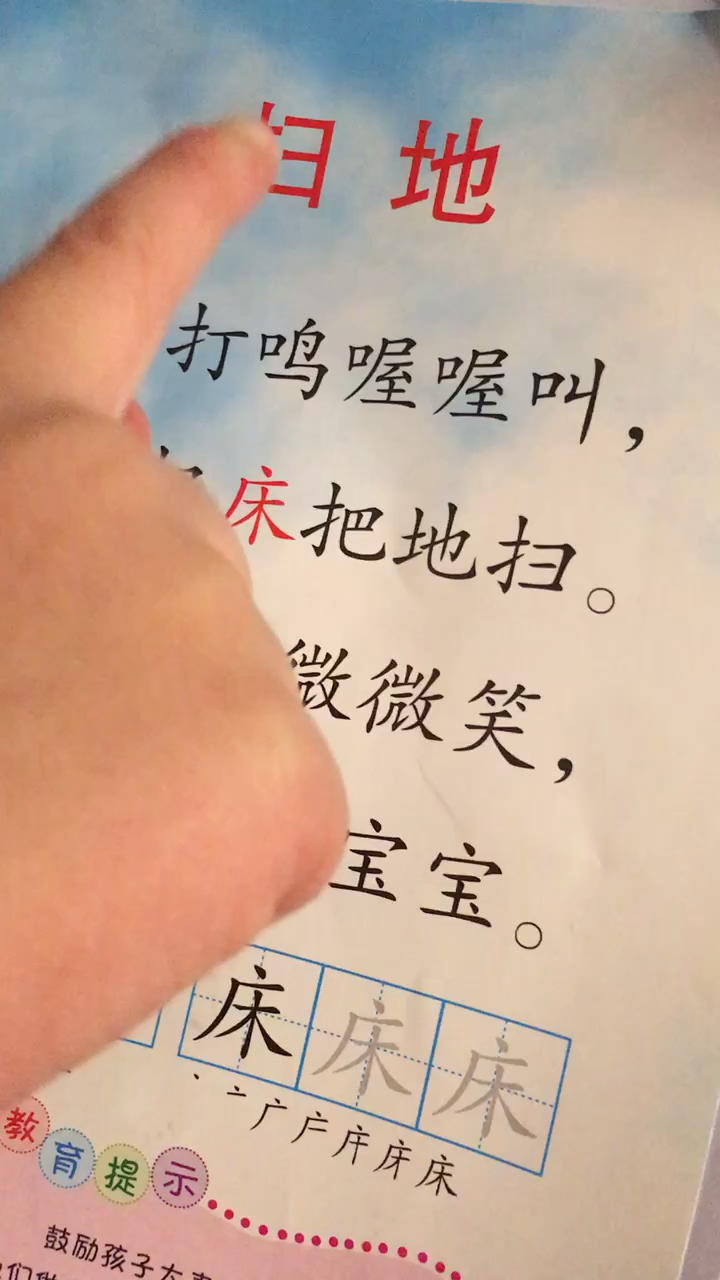 扫地
打鸣喔喔叫，
床把地扫。
微微笑，
宝宝。
床床床
丶亠广庐庄床床
教育提示
鼓励孩子